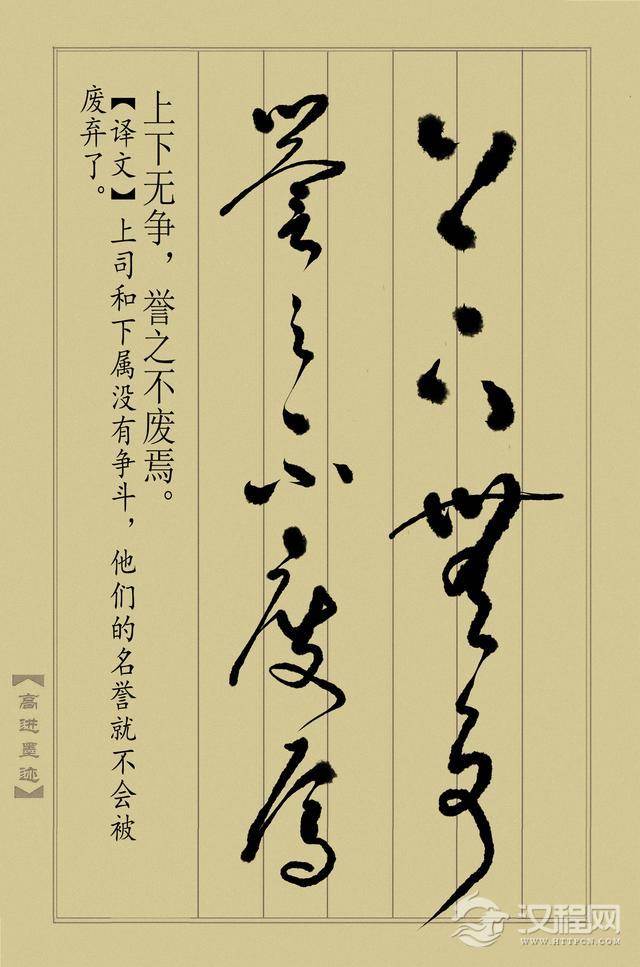 上下無爭
譽之不廢焉
上下无争，誉之不废焉。
【译文】上司和下属没有争斗，他们的名誉就不会被
废弃了。
【高进墨迹】
汉程网
WWW.HTTPCN.COM